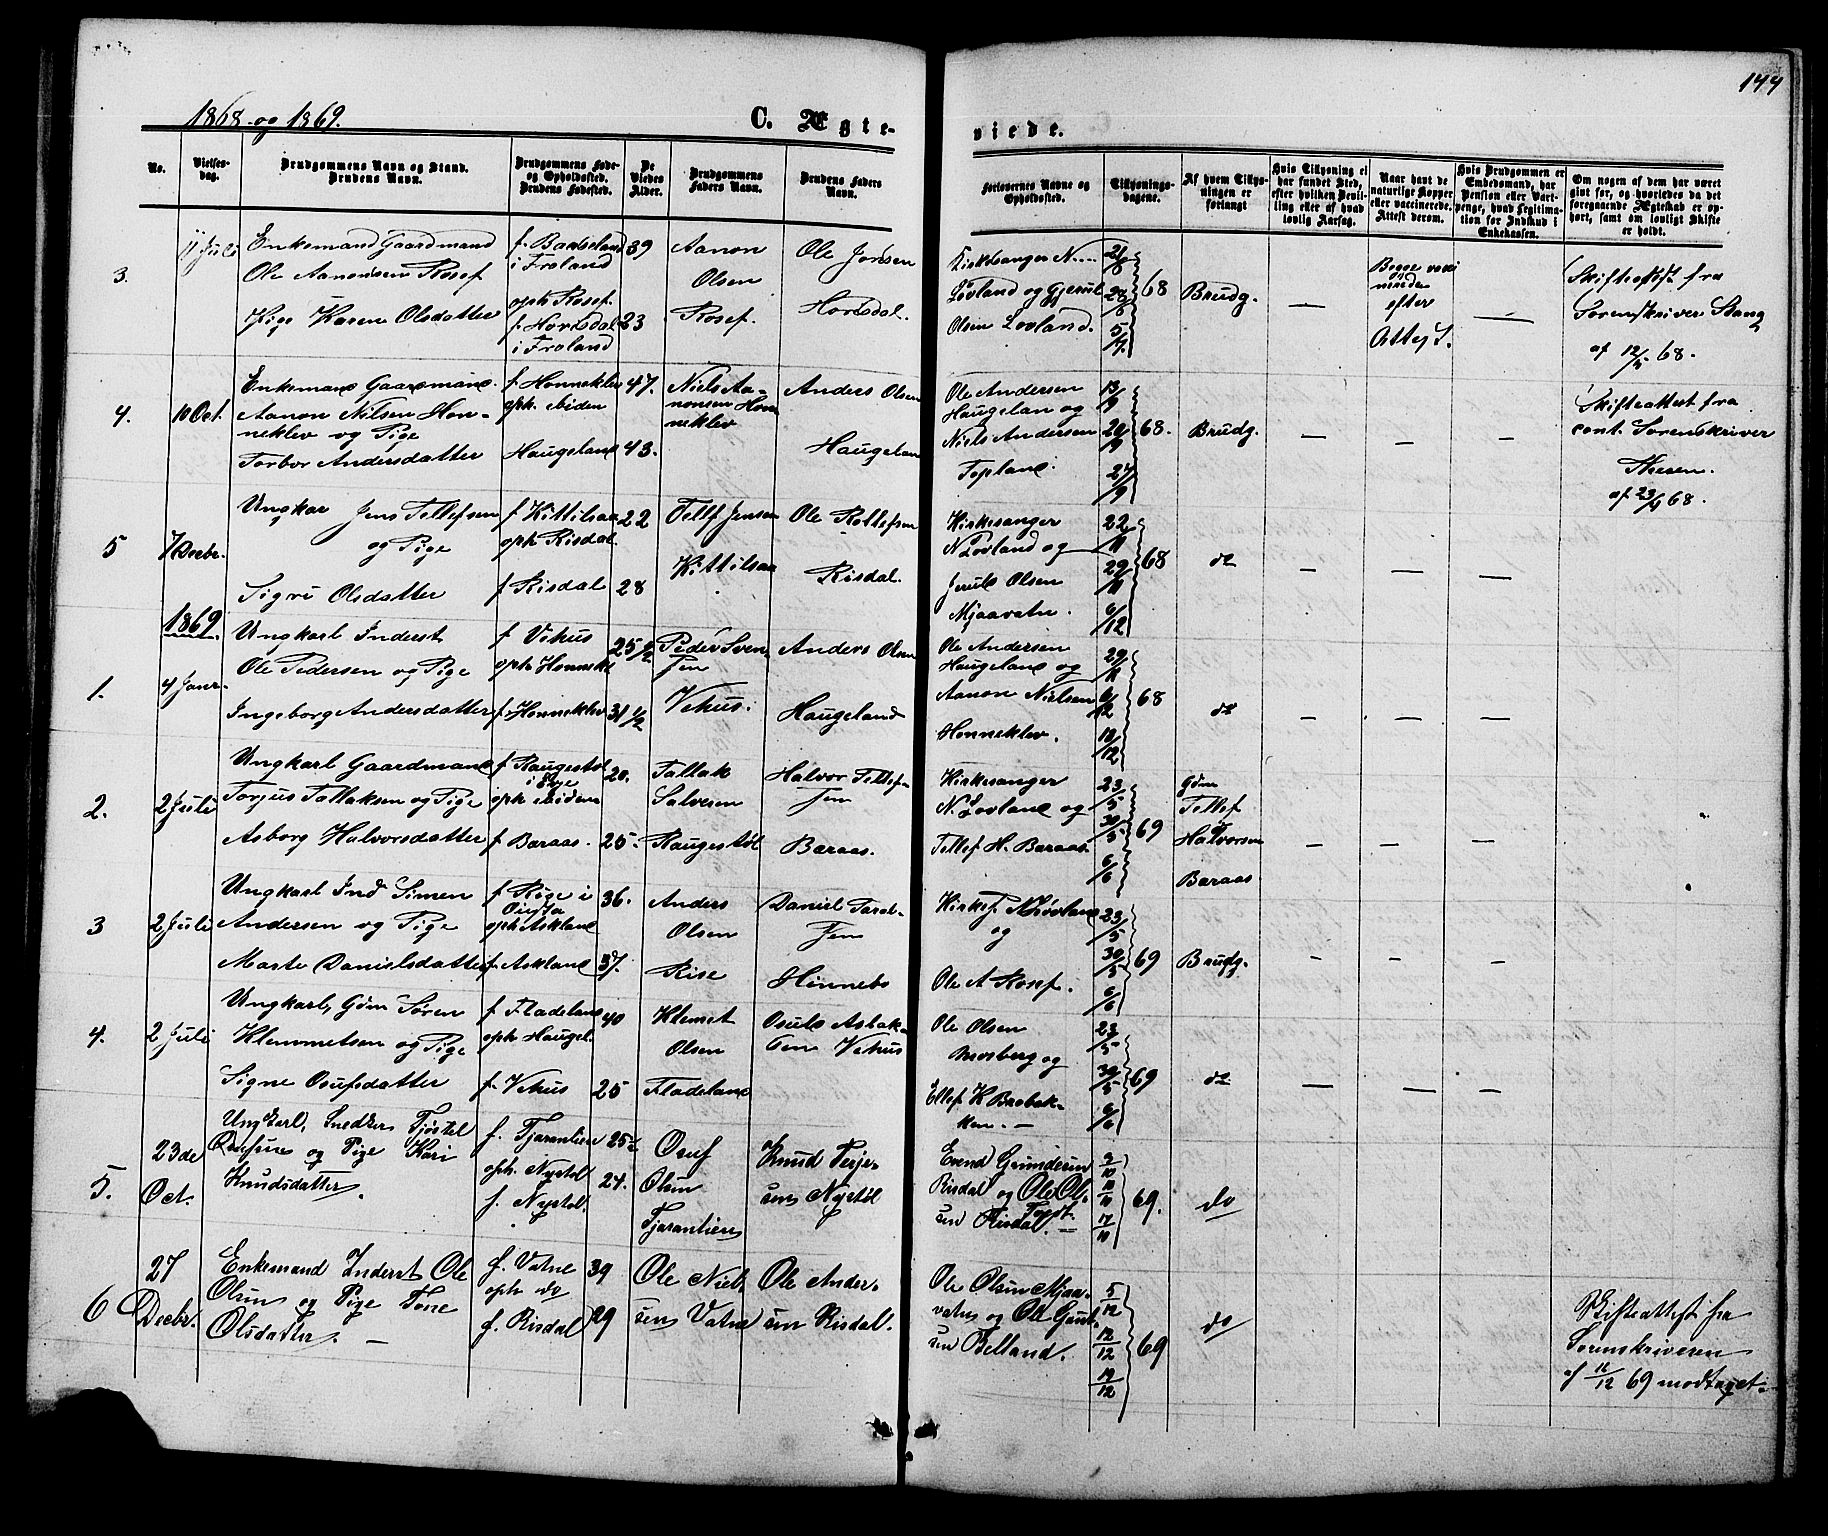 144
1868 og 1869.
C. Ægteviede.
No.
Vielses-dag.
Brudgommens Navn og Stand. Brudens Navn.
Brudgommens Føde- og Opholdssted. Brudens Fødested.
De Viedes Alder.
Brudgommens Faders Navn.
Brudens Faders Navn.
Forlovernes Navne og Opholdssted.
Tillysnings-dagene.
Af hvem Tillysningen er forlangt
Hvis Tillysning ei har fundet Sted, efter hvilken Bevilling eller af hvad lovlig Aarsag.
Naar havt de naturlige Kopper eller vaccinerede. Attest derom.
Hvis Brudgommen er Embedsmand, har Pension eller Vartpenge, hvad Legitimation for Indskud i Enkekassen.
Om nogen af dem har været givt før, og hvorledes da det foregaaende Ægteskab er ophørt, samt om lovligt Skifte er holdt.
3.
11 Juli
Enkemand Gaardmand
Ole Aanonsen Rosef
Pige Karen Olsdatter
f. Baaseland
i Froland
oph Rosef.
f. Hovisdal
i Froland
39
23
Aanon
Olsen
Rosef.
Ole Jonsen
Hovisdal.
Kirkesanger N.
Løvland og Gjerul
Olsen Lovland.
21/6
28/6
5/7.
68
Brudg.
—
Begge
efter
Attest.
—
Skifteattest fra
Sorenskriver Stang
af 12/5 68.
4.
10 Oct.
Enkemand Gaardmand
Aanon Nilsen Hon-
neklev og Pige
Torbor Andersdatter
f. Honneklev
oph. ibiden
Haugeland
47.
43.
Niels Aa-
nonsen Hon
neklev
Anders Olsen
Haugeland
Ole Andersen
Haugelan og
Niels Andersen
Topland.
13/9
20/9
27/9
68.
Brudg.
—
—
—
Skifteattest fra
const. Sorenskriver
af 23/9 68.
5
7 Decbr.
Ungkar Jens Tellefsen
og Pige
Sigri Olsdatter
f Kittilsaa
oph Risdal
f Risdal
22
28
Tellf Jensen
Kittilsaa
Ole Rollefsen
Risdal.
Kirkesanger
N Lovland og
Jeruld Olsen
Mjaavatn.
22/11
29/11
6/12
68
do
—
—
—
1869.
1.
4 Janr.
Ungkarl Inderst
Ole Pedersen og Pige
Ingeborg Andersdatter
f Vehus
oph Honnekl
f. Honneklev
25 1/2
31 1/2
Peder Sven
sen
Vehus.
Anders Olsen
Haugeland
Ole Andersen
Haugeland og
Aanon Nielsen
Honneklev.
29/11
6/12
13/12
68
do
—
—
—
2.
2 Juli
Ungkarl Gaardmand
Torjus Tallaksen og Pige
Asborg Halvorsdatter
f Raugestøl
i Evje
oph ibidem
f Baraas.
20.
25.
Tallak
Salvesen
Raugestøl
Halvor Tellef-
sen
Baraas.
Kirkesanger
N. Lovland og
Tellef H. Baraas
23/5
30/5
6/6
69
Gdm
Tellef
Halvorsen
Baraas.
—
—
—
3
2 Juli
Ungkarl Ind Simen
Andersen og Pige
Marte Danielsdatter
f Rige i
oph Askland
f. Askland
36.
37.
Anders
Olsen
Rise
Daniel Tarel-
sen
Hinnebo
Kirkes N Lövland
og
Ole A Rosef.
23/5
30/5
6/6
69
Brudg.
—
—
—
4.
2 Juli
Ungkarl, Gdm Søren
Klemmetsen og Pige
Signe Osufsdatter
f Fladeland
oph Haugel.
f. Vehus
40
25
Klemet
Olsen
Fladeland
Osuld Aslak-
sen Vehus
Ole Olsen
Mosberg og
Ellef K Brobak-
ken. —
23/5
30/5
6/6
69
do
—
—
—
5.
23de
Oct.
Ungkarl, Snedker Tjöstel
Osufsen og Pige Kari
Knudsdatter.
f. Tjaranlien
oph. Nystøl
f. Nystøl.
25 1/2
24.
Osuf
Olsen
Tjaranlien
Knud Terje-
sen Nystøl
Evend Gunderen
Risdal og Ole Ol-
sen Risdal. —
3/10
10/10
17/10
69.
do
6
27
Decbr.
Enkemand Inderst Ole
Olsen og Pige Tone
Olsdatter. —
f. Vatne
oph do
f. Risdal
39
29
Ole Niel-
sen Vatne
Ole Ander-
sen Risdal.
Ole Olsen Mjaa-
vatn og Ole Gunt-
sen Belland.
5/12
12/12
19/12
69
do
Skifteattest fra
Sorenskriveren
af 11/12 69 modtaget.